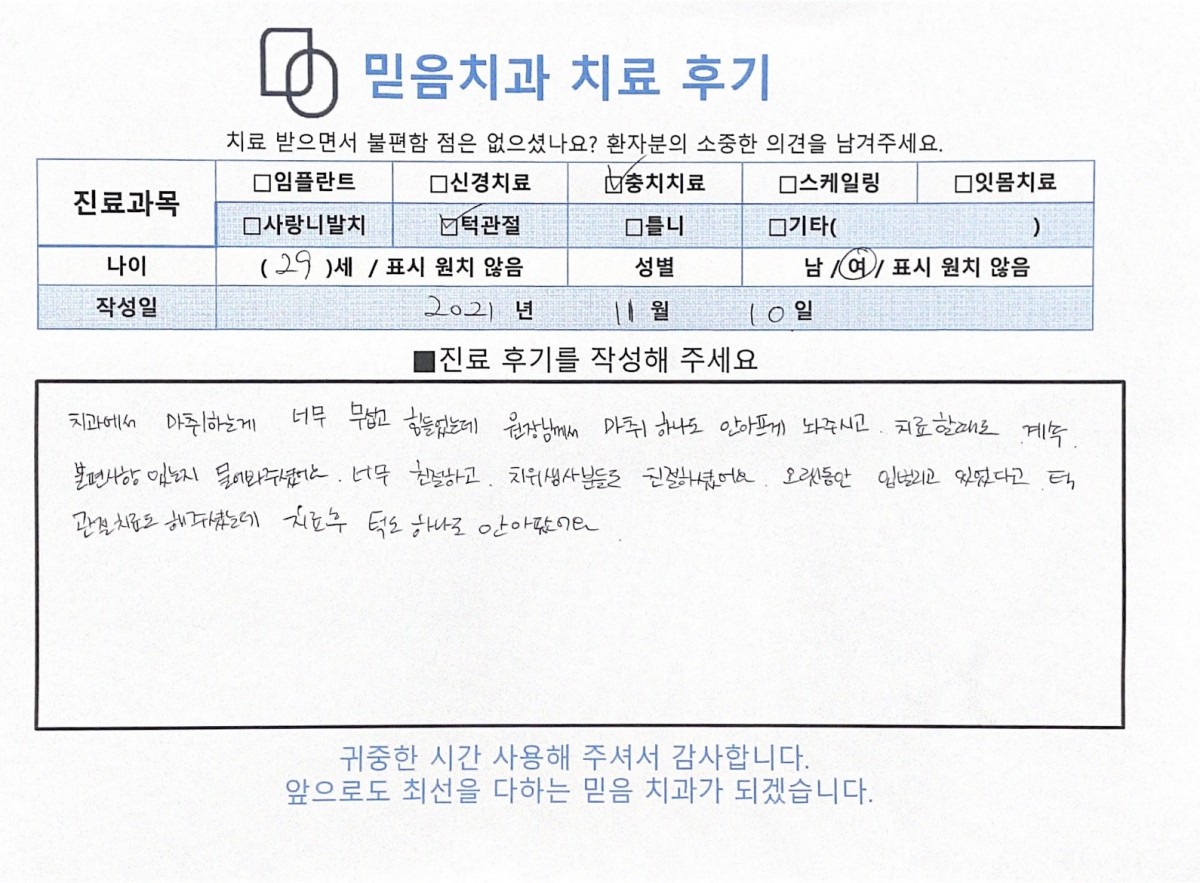 믿음치과 치료 후기
치료 받으면서 불편함 점은 없으셨나요? 환자분의 소중한 의견을 남겨주세요.
진료과목 □임플란트 □신경치료 ☑충치치료 □스케일링 □잇몸치료
□사랑니발치 ☑턱관절 □틀니 □기타( )
나이 ( 29 )세 / 표시 원치 않음 성별 남 / 여 / 표시 원치 않음
작성일 2021 년 11 월 10 일
■진료 후기를 작성해 주세요
치과에서 마취하는게 너무 무섭고 힘들었는데 원장님께서 마취 하나도 안아프게 놔주시고. 치료할때도 계속
불편사항 있는지 물어봐주셨어요. 너무 친절하고. 치위생사분들도 친절하셨어요. 오랫동안 입벌리고 있었다고 턱
관절치료도 해주셨는데 치료후 턱도 하나도 안아팠어요
귀중한 시간 사용해 주셔서 감사합니다.
앞으로도 최선을 다하는 믿음 치과가 되겠습니다.